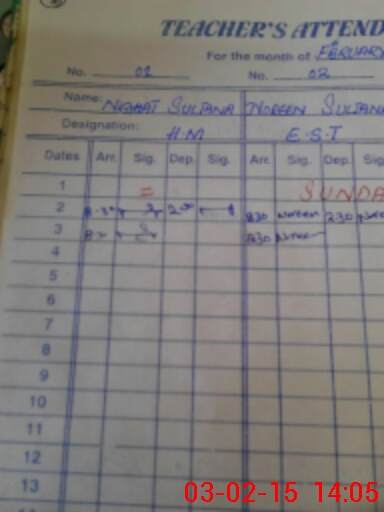 TEACHER'S ATTEND
For the month of FEBRUARY
No. 01 No. 02
Name: NIGHAT SULTANA NOREEN SULTANA
Designation: H.M E.S.T
Dates Arr. Sig. Dep. Sig. Arr. Sig. Dep. Sig
1 = SUNDA
2 2 00 830 Noreen 230
3 830 Noreen
4
5
6
7
8
9
10
11
12
13
03-02-15 14:05